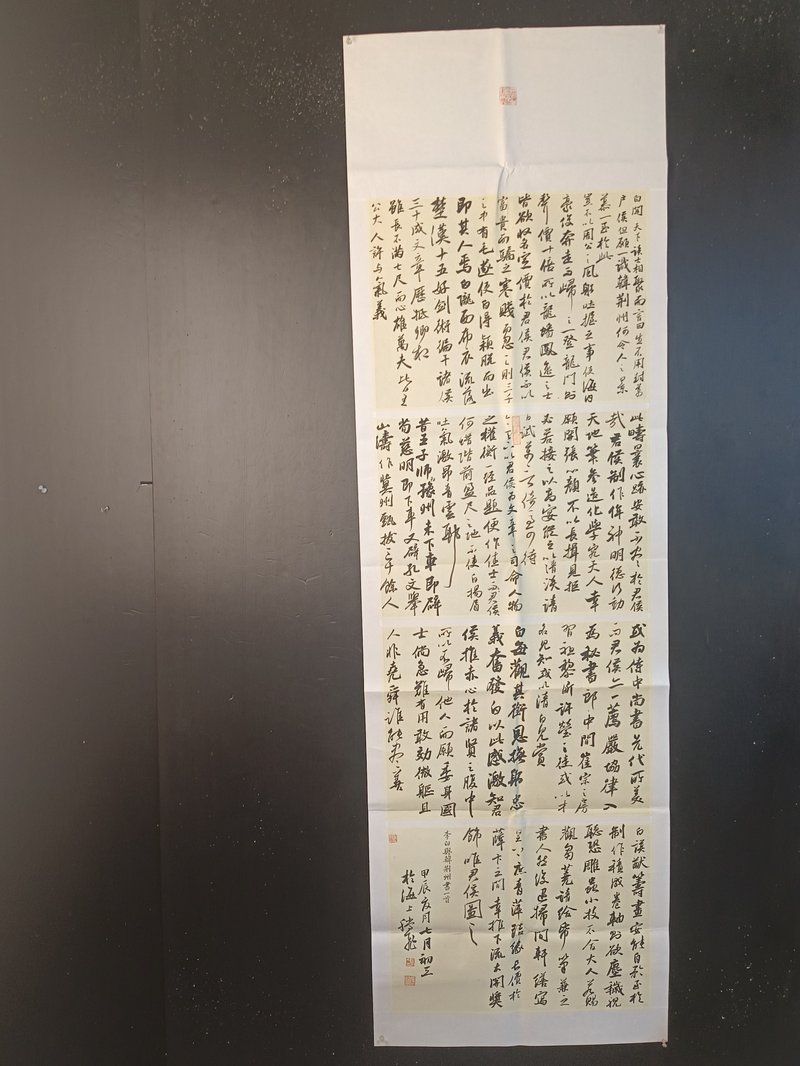 白聞天下談士相聚而言曰生不用封萬
户侯但願一識韓荆州何令人之景
慕一至於此
豈不以周公之風躬吐握之事使海内
豪俊奔走而歸之一登龍門則
聲價十倍所以龍蟠鳳逸之士
皆欲收名定價於君侯君侯不以
富貴而驕之寒賤而忽之則三千
之中有毛遂使白得穎脱而出
即其人焉白隴西布衣流落
楚漢十五好劍術徧干諸侯
三十成文章歷抵卿相
雖長不滿七尺而心雄萬夫皆王
公大人許與氣義
此疇曩心跡安敢不盡於君侯
哉君侯制作侔神明德行動
天地筆參造化學究天人幸
願開張心顔不以長揖見拒
必若接之以高宴縱之以清談請
日試萬言倚馬可待
今天下以君侯為文章之司命人物
之權衡一經品題便作佳士而君侯
何惜階前盈尺之地不使白揚眉
吐氣激昂青雲耶
昔王子師豫州未下車即辟
荀慈明即下車又辟孔文舉
山濤作冀州甄拔三十餘人
或為侍中尚書先代所美
而君侯亦一薦嚴協律入
為秘書郎中間崔宗之房
習祖黎昕許瑩之徒或以才
名見知或以清白見賞
白每觀其銜恩撫躬忠
義奮發白以此感激知君
侯推赤心於諸賢之腹中
所以不歸他人而願委身國
士倘急難有用敢効微軀且
人非堯舜誰能盡善
白謨猷籌畫安能自矜至於
制作積成卷軸則欲塵穢視
聽恐雕蟲小技不合大人若賜
觀芻蕘請給紙筆兼之
書人然後退掃閒軒繕寫
呈上庶青萍結緑長價於
薛卞之門幸推下流大開獎
飾唯君侯圖之
李白與韓荆州書一首
甲辰夏月七月初三
於海上